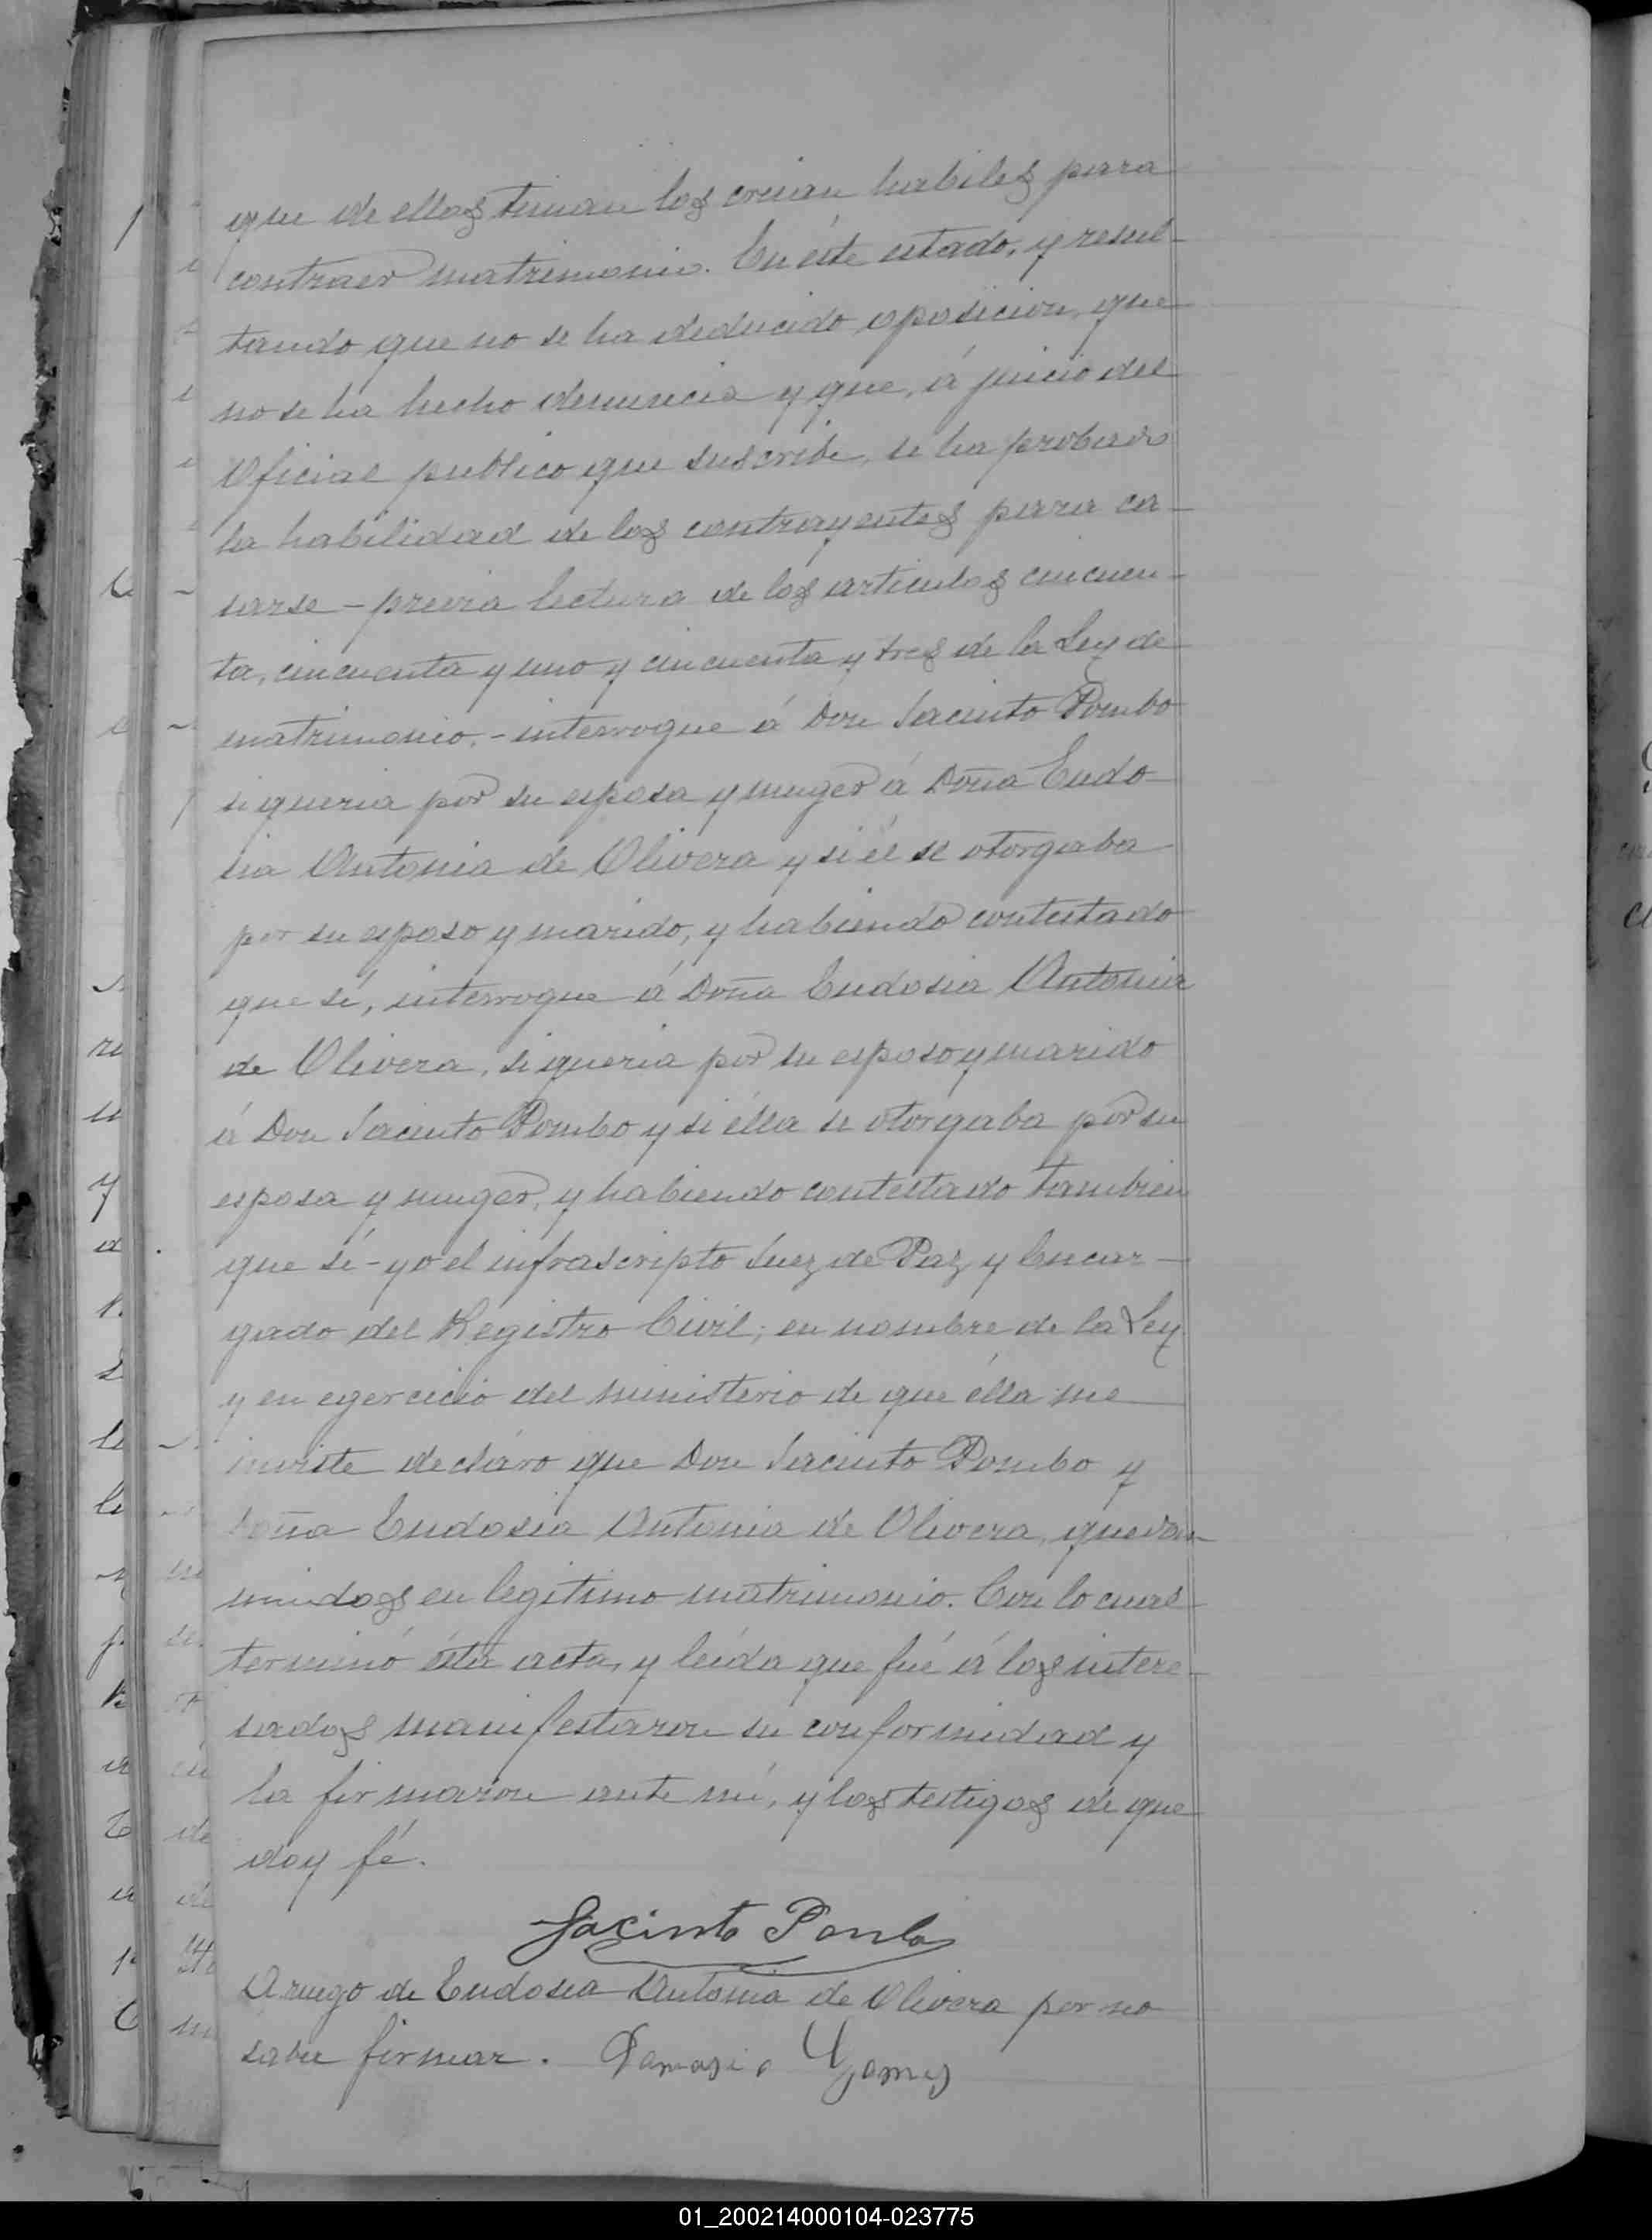 que de ellos tenian los creian habiles para
contraer matrimonio. En éste estado, y resul-
tando que no se ha deducido oposicion, que
no se ha hecho denuncia y que, á juicio del
Oficial publico que suscribe, se ha probado
la habilidad de los contrayentes para ca-
sarse - previa lectura de los articulos cincuen-
ta, cincuenta y uno y cincuenta y tres de la Ley de
matrimonio, - interrogue á Don Jacinto Pombo
si queria por su esposa y muger á Doña Eudo
sia Antonia de Olivera y si él se otorgaba
por su esposo y marido, y habiendo contestado
que sí, interrogue á Doña Eudosia Antonia
de Olivera, si queria por su esposo y marido
á Don Jacinto Pombo y si élla se otorgaba por su
esposa y muger, y habiendo contestado tambien
que sí - yo el infrascripto Juez de Paz y Encar-
gado del Registro Civil; en nombre de la Ley
y en egercicio del ministerio de que élla me
inviste declaro que Don Jacinto Pombo y
Doña Eudosia Antonia de Olivera, quedan
unidos en legitimo matrimonio. Con lo cual
terminó ésta acta, y leida que fué á los intere-
sados manifestaron su conformidad y
la firmaron ante mí, y los testigos de que
doy fé.
Jacinto Pombo
A ruego de Eudosia Antonia de Olivera por no
saber firmar. Damasio Gomes
01_200214000104-023775